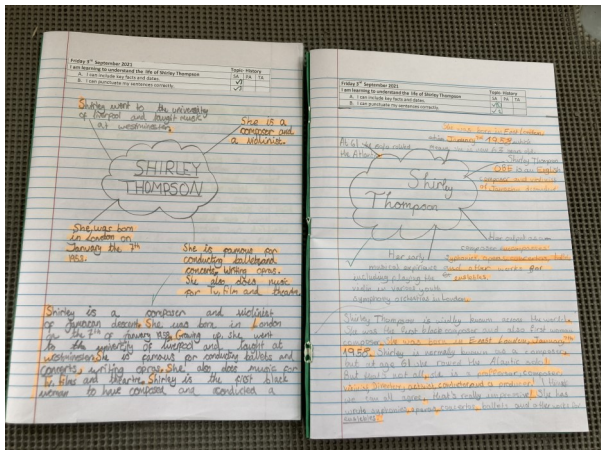 Friday 3rd September 2021
I am learning to understand the life of Shirley Thompson
Topic: History
A. I can include key facts and dates.
B. I can punctuate my sentences correctly.
SA PA TA
Shirley went to the university
of liverpool and taught music
at westminister.
She is a
composer and
a violinist.
SHIRLEY
THOMPSON
She, was born
in London on
January the 7th
1958.
She is famous for
conducting
concerts, writing opras.
She also does music
for Tv, film and
Shirley is a composer and violinist
of jamacan descent. She was born in London
the 7th of January 1958. Growing up, she went
to the university of liverpool and taught at
westminister. She is famous for conducting ballets and
concerts, writing opras. She also does music for
Tv, films and theatre. Shirley is the first black
woman to have composed and conducted a
Friday 3rd September 2021
I am learning to understand the life of Shirley Thompson
Topic: History
A. I can include key facts and dates.
B. I can punctuate my sentences correctly.
SA PA TA
She was born in East London
January 7th 1958
At 61 she
the Atlantic
Shirley Thompson
OBE is an English
composer and
of Jamaican
Shirley
Thompson
Her output as a
composer
and other works for
Her early
musical experience
including playing the
violin in various youth
symphony orchestras in London
Shirley Thompson is widly known across the world.
She was the first black composer and also first woman
composer. She was born in East London, January 7th
1958. Shirley is normaly known as a composer,
but at age 61 she rowed the Atlantic
But that's not all, she is a composer,
and a producer! I think
we can all agree, that's really impressive! She has
wrote operas, concertos, ballets and other works for